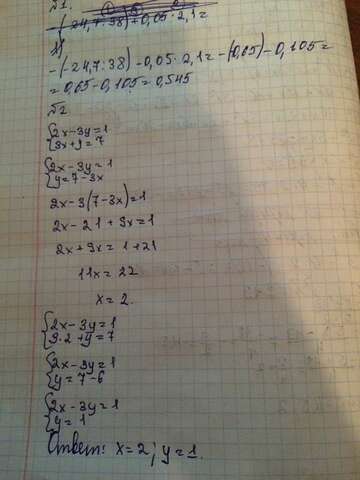 №1.
(-24,7:38)+0,05·2,1=
1)
-(-24,7:38)-0,05·2,1=-(0,65)-0,105=
=0,65-0,105=0,545
№2
{2x-3y=1
{3x+y=7
{2x-3y=1
{y=7-3x
2x-3(7-3x)=1
2x-21+9x=1
2x+9x=1+21
11x=22
x=2.
{2x-3y=1
{3·2+y=7
{2x-3y=1
{y=7-6
{2x-3y=1
{y=1
Ответ: x=2; y=1.